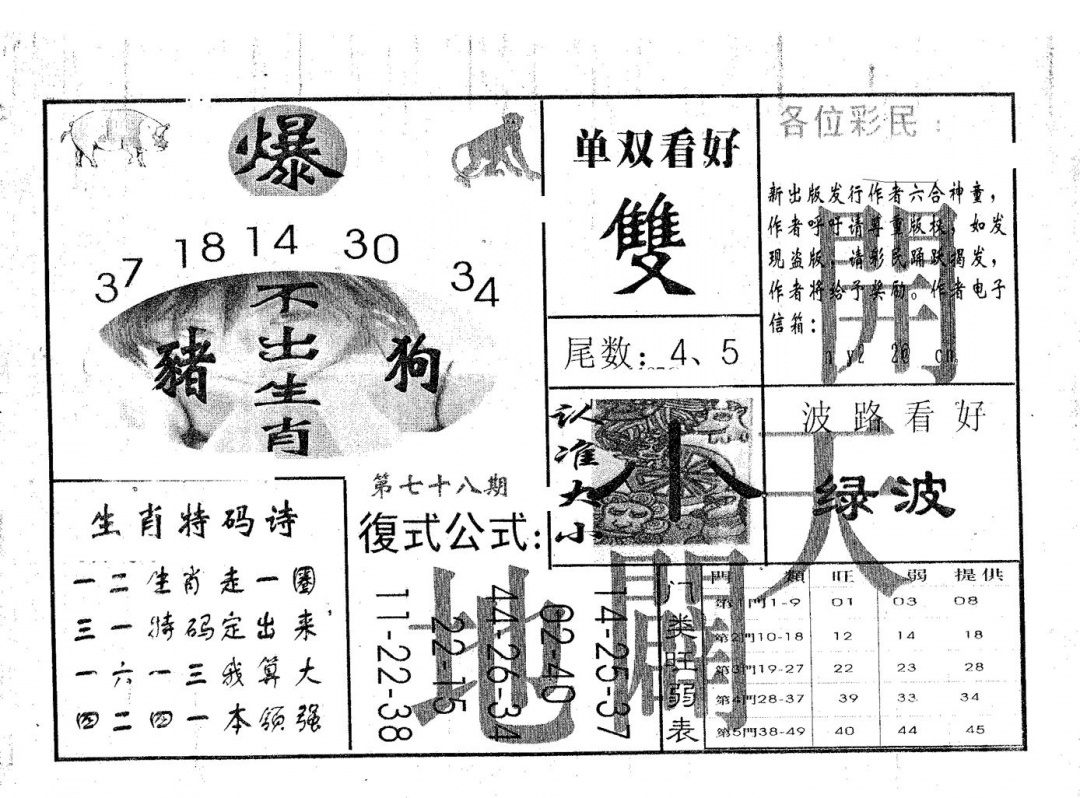 爆
37 18 14 30 34
不出生肖
豬
狗
单双看好
雙
尾数：4、5
各位彩民：
新出版发行作者六合神童，
作者呼吁请尊重版权，如发
现盗版，请彩民踊跃揭发，
作者将给予奖励。作者电子
信箱：
開
认准大小
小
波路看好
绿波
天
生肖特码诗
一二生肖走一圈
三一特码定出来，
一六一三我算大
四二四一本领强
第七十八期
復式公式：
14-25-37
02-40
44-26-34
22-15
11-22-38
地
闢
门类旺弱表
門類 旺 弱 提供
第1門1-9 01 03 08
第2門10-18 12 14 18
第3門19-27 22 23 28
第4門28-37 39 33 34
第5門38-49 40 44 45